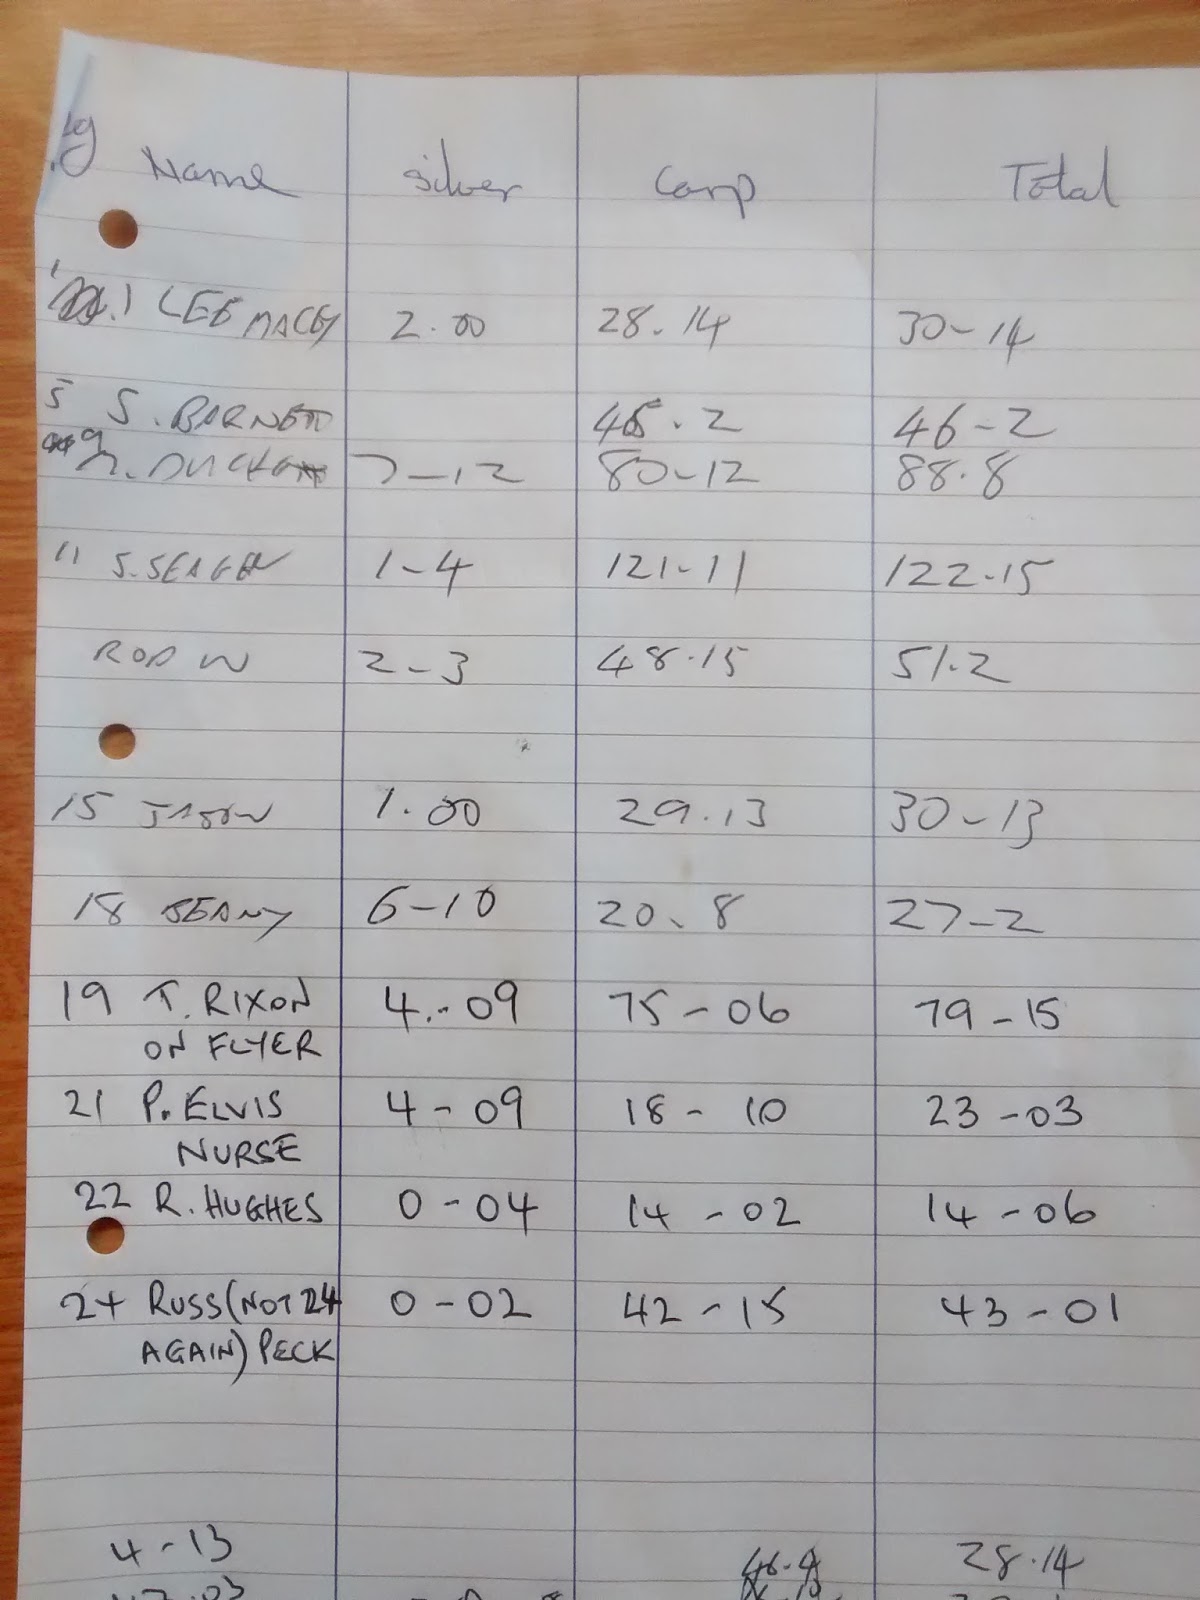 Name silver Carp Total
1 LEE MACEY 2.00 28.14 30-14
5 S. BARNETT 46.2 46-2
9 7-12 80-12 88.8
11 S.SEAGER 1-4 121-11 122-15
ROD W 2-3 48.15 51.2
15 JASON 1.00 29.13 30-13
18 6-10 20.8 27-2
19 T. RIXON 4.-09 75-06 79-15
ON FLYER
21 P. ELVIS 4-09 18-10 23-03
NURSE
22 R. HUGHES 0-04 14-02 14-06
24 RUSS (NOT 24 0-02 42-15 43-01
AGAIN) PECK
4-13 28.14